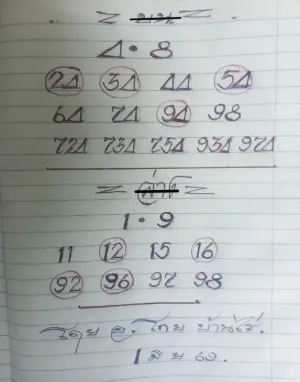 บน
4 • 8
24 34 44 54
64 74 94 98
724 734 754 934 974
ล่าง
1 • 9
11 12 15 16
92 96 97 98
โดย อ. โดย บ้านไร่.
1 เม.ย 69.